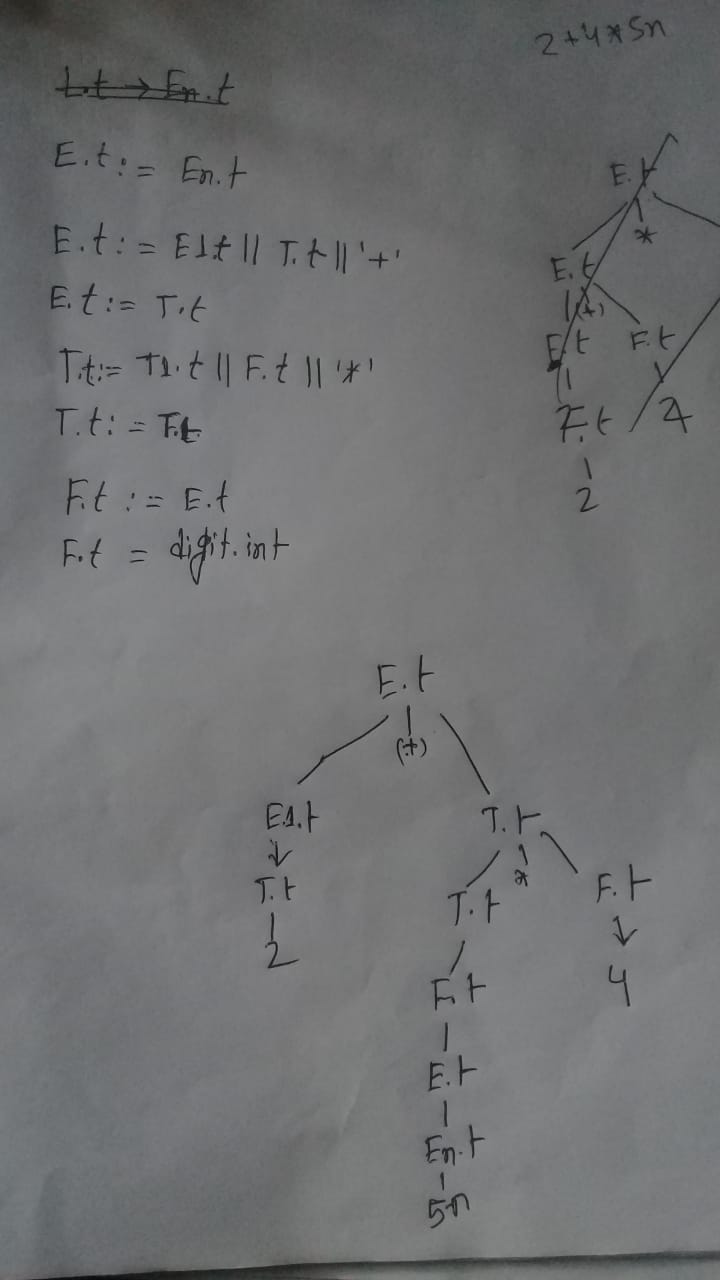 2+4*5n
L.t → En.t
E.t := En.t
E.t := E1.t || T.t || '+'
E.t := T.t
T.t := T1.t || F.t || '*'
T.t := F.t
F.t := E.t
F.t = digit.int
E.t
*
E.t
(+)
E.t F.t
F.t 4
2
E.t
(+)
E1.t T.t
*
T.t T.t F.t
2 4
F.t
E.t
En.t
5n